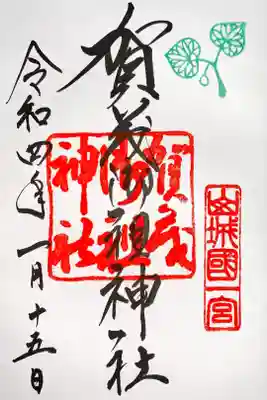 山城國一宮
賀茂御祖神社
賀茂御祖神社
令和四年一月十五日